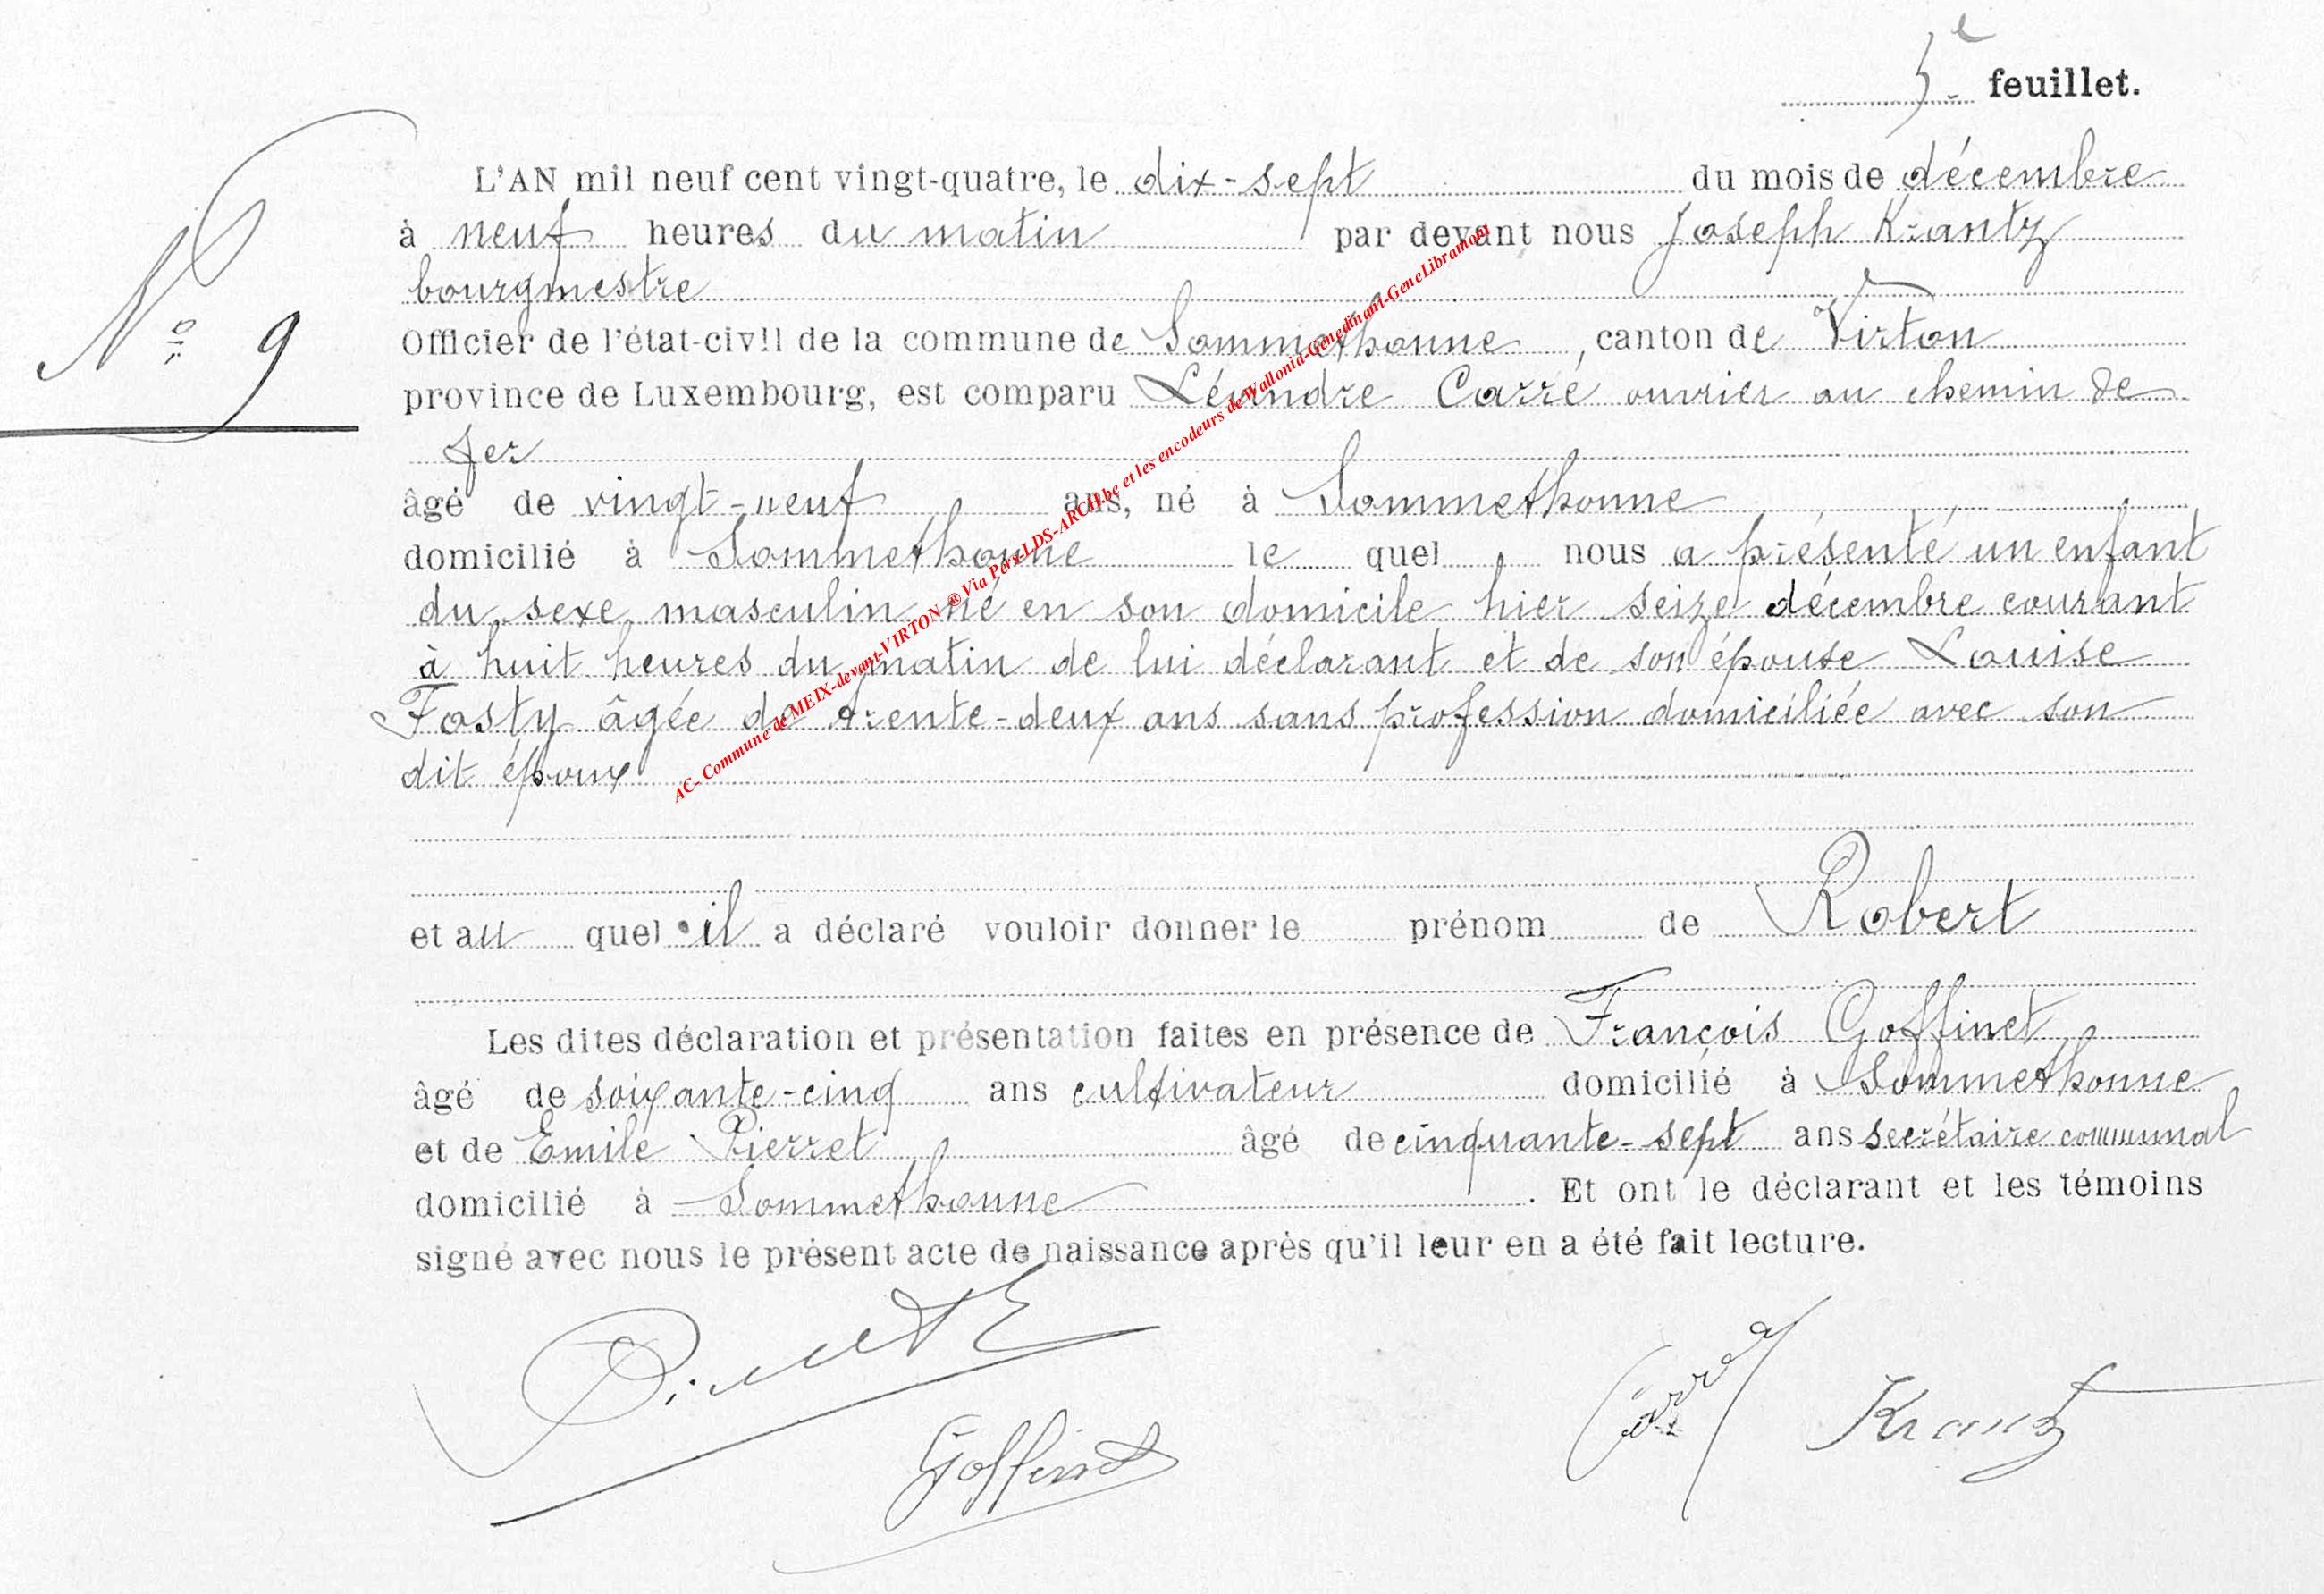 5e feuillet.
L'AN mil neuf cent vingt-quatre, le dix-sept du mois de décembre
à neuf heures du matin par devant nous Joseph Krantz
bourgmestre
Officier de l'état-civil de la commune de Sommethonne, canton de Virton
N° 9
province de Luxembourg, est comparu Léandre Carré ouvrier au chemin de
fer
âgé de vingt-neuf ans, né à Sommethonne
domicilié à Sommethonne le quel nous a présenté un enfant
du sexe masculin né en son domicile hier seize décembre courant
à huit heures du matin de lui déclarant et de son épouse Louise
Fosty âgée de trente-deux ans sans profession domiciliée avec son
dit époux
AC- Commune de MEIX-devant-VIRTON ® Via Pers-LDS-ARCH.be et les encodeurs de Wallonia-Genedinant-GeneLibramont
et au quel il a déclaré vouloir donner le prénom de Robert
Les dites déclaration et présentation faites en présence de François Goffinet
âgé de soixante-cinq ans cultivateur domicilié à Sommethonne
et de Emile Pierret âgé de cinquante-sept ans secrétaire communal
domicilié à Sommethonne. Et ont le déclarant et les témoins
signé avec nous le présent acte de naissance après qu'il leur en a été fait lecture.
Pierret E
Carré
Krantz
Goffinet